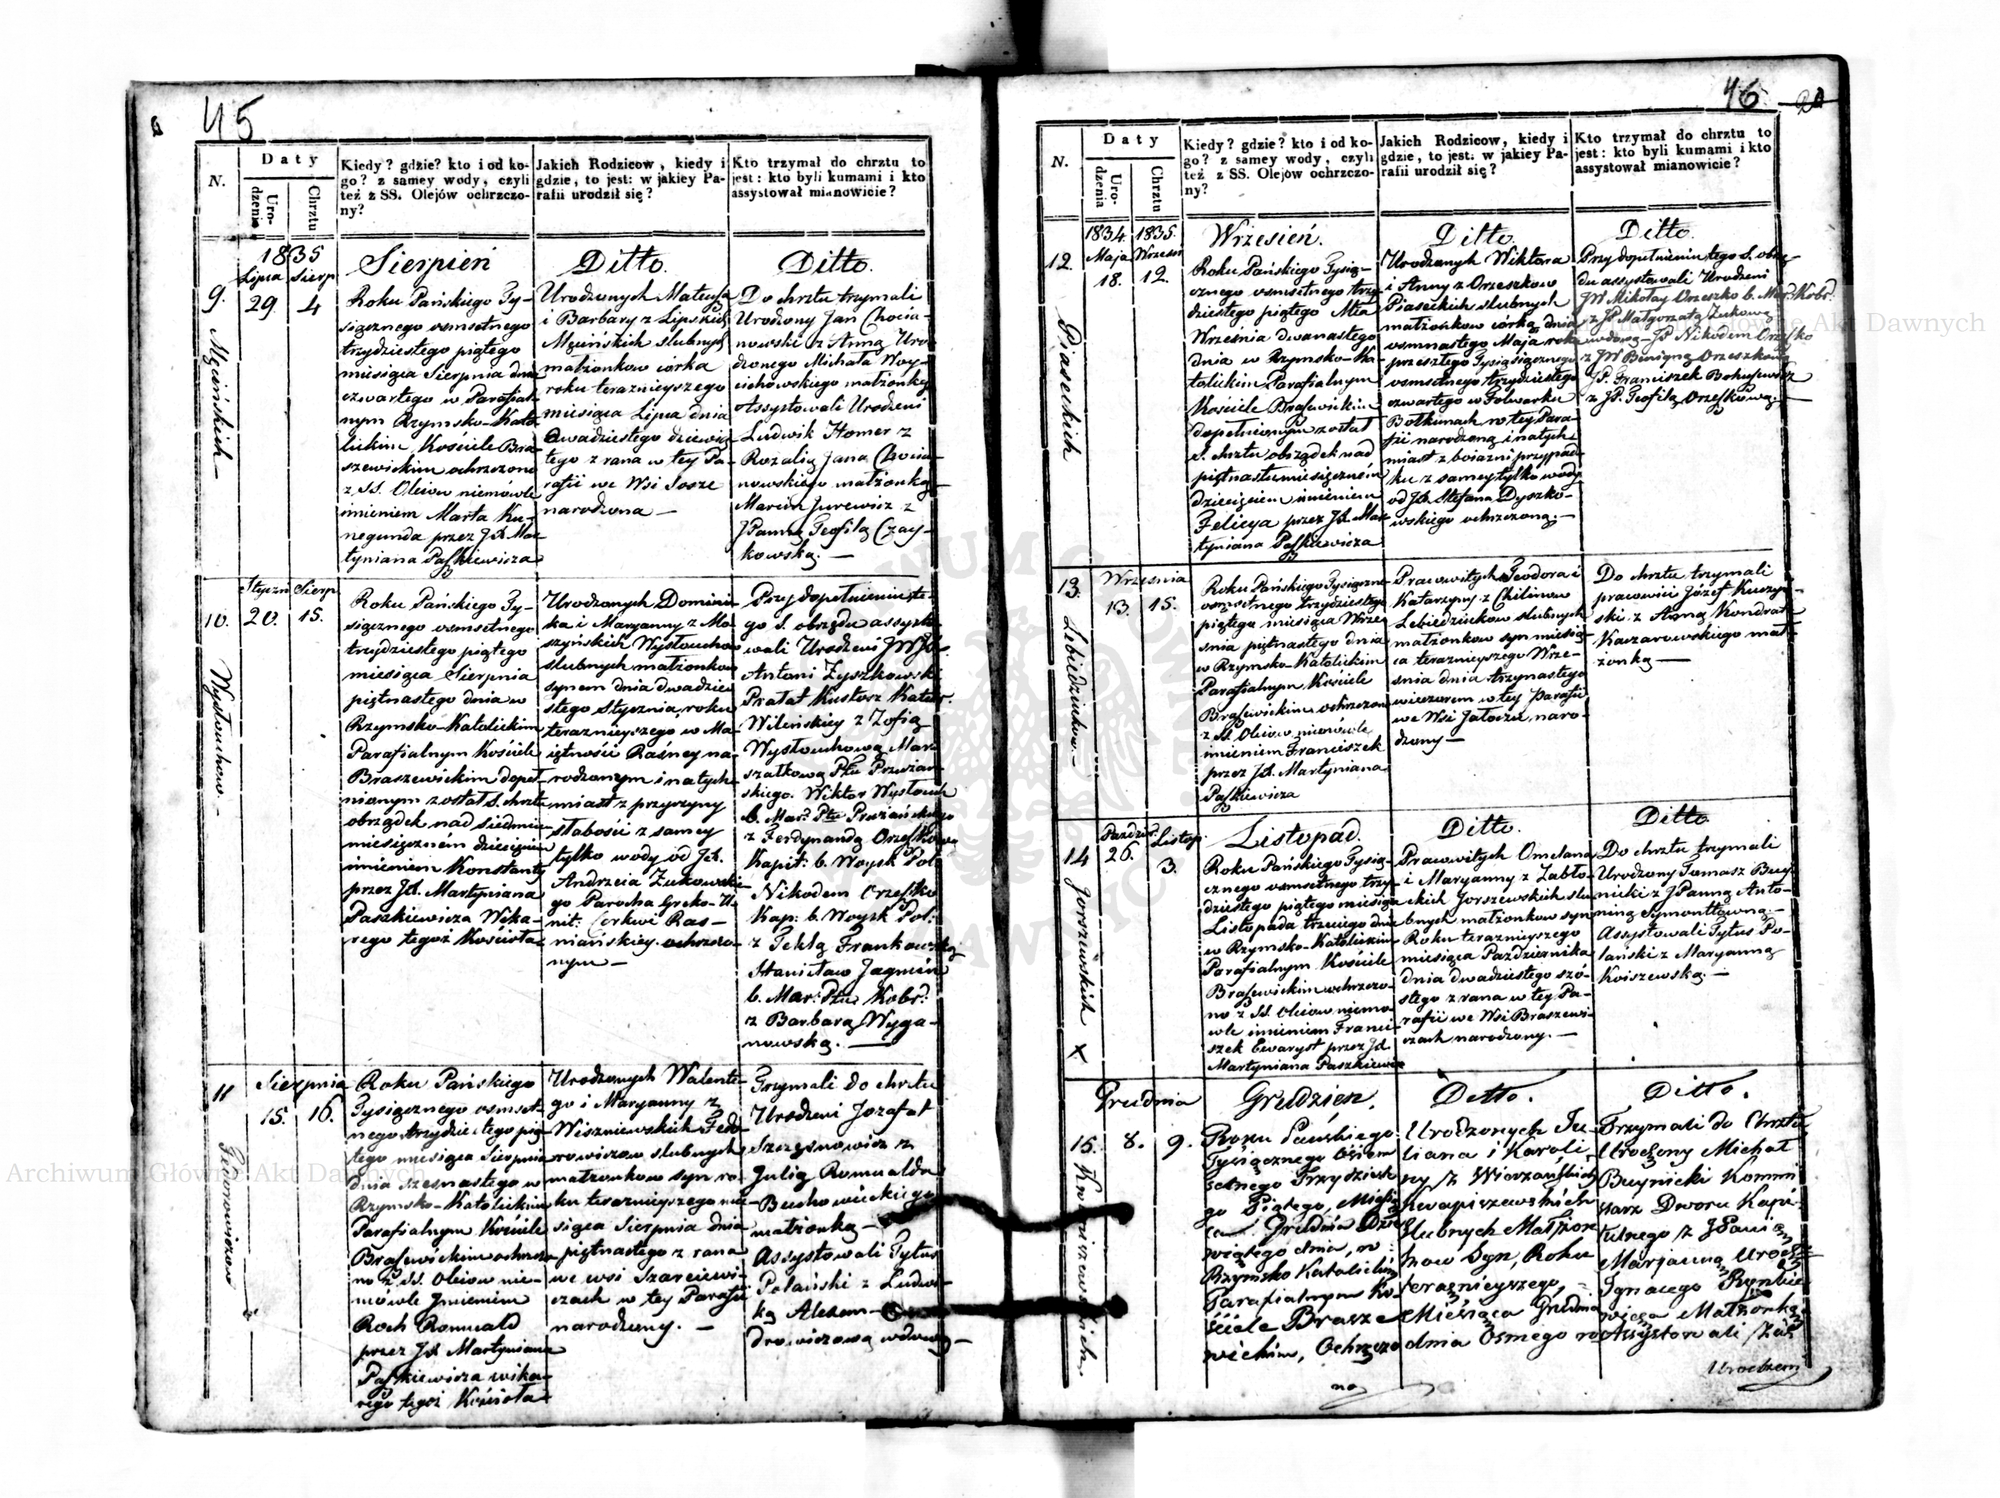 45
N.
Daty
Uro-
dzenia
Chrztu
Kiedy? gdzie? kto i od ko-
go? z samey wody, czyli
też z SS. Olejów ochrzczo-
ny?
Jakich Rodzicow, kiedy i
gdzie, to jest: w jakiey Pa-
rafii urodził się?
Kto trzymał do chrztu to
jest: kto byli kumami i kto
assystował mianowicie?
1835
Lipca Sierp
9. 29. 4
Mącińskich
Sierpień
Roku Pańskiego Ty-
siącznego osmsetnego
trzydziestego piątego
miesiąca Sierpnia dnia
czwartego w Parafial-
nym Rzymsko-Kato-
lickim Kościele Bra-
szewickim ochrzczono
z SS. Oleiow niemówle
imieniem Marta Ku-
negunda przez Jd. Mar-
tyniana Paszkiewicza
Ditto.
Urodzonych Mateusza
i Barbary z Lipskich
ślubnych
małżonkow corka
roku teraznieyszego
miesiąca Lipca dnia
dwadziestego dziewią-
tego z rana w tey Pa-
rafii we Wsi Sosze
narodzona —
Ditto.
Do chrztu trzymali
Urodzony Jan Chocia-
nowski z Anną Uro-
dzonego Michała Woy-
ciechowskiego małżonką
Assystowali Urodzeni
Ludwik Homer z
Rozalią Jana Chocia-
nowskiego małżonką
Marcin Jurewicz z
JPanną Teofilą Czay-
kowską. —
Styczn Sierp.
10. 20. 15.
Wysłouchow.
Roku Pańskiego Ty-
siącznego osmsetnego
trzydziestego piątego
miesiąca Sierpnia
piętnastego dnia w
Rzymsko-Katolickim
Parafialnym Kościele
Braszewickim dopeł-
nionym został S. chrztu
obrządek nad siedmiu
miesięcznem dziecięciem
imieniem Konstanty
przez Jd. Martyniana
Paszkiewicza Wika-
rego tegoż Kościoła
Urodzonych Domini-
ka i Maryanny z Mo-
szyńskich Wysłouchow
ślubnych małżonkow
synem dnia dwadzie-
stego Stycznia roku
teraznieyszego w Ma-
iętności Raśney na-
rodzonym i natych-
miast z przyczyny
słabości z samey
tylko wody od Jd.
Andrzeia Żukowskie-
go Parocha Greko-U-
nit: Cerkwi Ras-
niańskiey ochrzczo-
nym —
Przy dopełnieniu te-
go S. obrządu assysto-
wali Urodzeni
Antoni Zyszkowski
Prałat Kustosz Kated:
Wileńskiey z Zofią
Wysłouchową Mar-
szałkową Ptu Prużań-
skiego. Wiktor Wysłouch
b. Mar: Ptu Prużańskiego
z Ferdynandą Orzeszkową
Kapit: b. Woysk Pol:
Nikodem Orzeszko
Kap: b. Woysk Pol:
z Teklą Frankowską
Stanisław Jagmin
b. Mar: Ptu Kobr:
z Barbarą Wyga-
nowską. —
Sierpnia
11 15. 16.
Fedorowiczow
Roku Pańskiego
Tysiącznego osmset-
nego trzydziestego pią-
tego miesiąca Sierpnia
dnia szesnastego w
Rzymsko-Katolickim
Parafialnym Kościele
Braszewickim ochrzczo-
no z SS. Oleiow nie-
mówle Imieniem
Roch Romuald
przez Jd. Martyniana
Paszkiewicza wika-
rego tegoż Kościoła
Urodzonych Walente-
go i Maryanny z
Wiszniewskich Fedo-
rowiczow ślubnych
małżonkow syn ro-
ku teraznieyszego mie-
siąca Sierpnia dnia
piętnastego z rana
we wsi Szarciewi-
czach w tey Parafii
narodzony. —
Trzymali do chrztu
Urodzeni Jozafat
Szczęsnowicz z
Julią Romualda
Buchowieckiego
małżonką —
Assystowali Tytus
Polański z Ludwi-
ką Alexan-
drowiczową wdową —
46
20
N.
Daty
Uro-
dzenia
Chrztu
Kiedy? gdzie? kto i od ko-
go? z samey wody, czyli
też z SS. Olejów ochrzczo-
ny?
Jakich Rodzicow, kiedy i
gdzie, to jest: w jakiey Pa-
rafii urodził się?
Kto trzymał do chrztu to
jest: kto byli kumami i kto
assystował mianowicie?
1834. 1835.
Maja Wrześń
12. 18. 12.
Piaseckich
Wrzesień.
Roku Pańskiego Tysią-
cznego osmsetnego trzy-
dziestego piątego Mca
Września dwanastego
dnia w Rzymsko-Ka-
tolickim Parafialnym
Kościele Braszewickim
dopełnionym został
S. chrztu obrządek nad
piętnastumiesięcznem
dziecięciem imieniem
Felicya przez Jd. Mar-
tyniana Paszkiewicza
Ditto.
Urodzonych Wiktora
i Anny z Orzeszkow
Piaseckich ślubnych
małżonkow córką dnia
osmnastego Maja roku
przeszłego Tysiąsięcznego
osmsetnego trzydziestego
czwartego w Folwarku
Bołkunach w tey Para-
fii narodzoną i natych-
miast z boiazni przypad-
ku z samey tylko wody
od Jd. Stefana Dyszko-
wskiego ochrzczoną. —
Ditto.
Przy dopełnieniu tego S. obrzę-
du assystowali Urodzeni
JW Mikołay Orzeszko b. Mar. Kobr.
z JP Małgorzatą Żukową
wdową — JP Nikodem Orzeszko
z JW Benigną Orzeszkową
JP. Franciszek Bohuszewicz
z JP. Teofilą Orzeszkową. —
Września
13. 13. 15.
Lebiedziukow —
Roku Pańskiego Tysiączne-
osmsetnego trzydziestego
piątego miesiąca Wrze-
śnia piętnastego dnia
w Rzymsko-Katolickim
Parafialnym Kościele
Braszewickim ochrzczono
z SS. Oleiow niemówle
imieniem Franciszek
przez Jd. Martyniana
Paszkiewicza
Pracowitych Teodora i
Katarzyny z Chilimow
Lebiedziukow ślubnych
małżonkow syn miesią-
ca teraznieyszego Wrze-
śnia dnia trzynastego
wieczorem w tey Parafii
we Wsi Jałoczu naro-
dzony —
Do chrztu trzymali
pracowici Józef Kuczyń-
ski z Anną Kondrata
Kaczarowskiego mał-
żonką —
Paździer. Listop.
14 26. 3.
Jorszewskich x
Listopad.
Roku Pańskiego Tysią-
cznego osmsetnego trzy-
dziestego piątego miesiąca
Listopada trzeciego dnia
w Rzymsko-Katolickim
Parafialnym Kościele
Braszewickim ochrzczo-
no z SS. Oleiow niemo-
wle imieniem Franci-
szek Ewaryst przez Jd.
Martyniana Paszkiewicza
Ditto.
Pracowitych Omelana
i Maryanny z Zabło-
ckich Jorszewskich ślu-
bnych małżonkow syn
Roku teraznieyszego
miesiąca Października
dnia dwadziestego szo-
stego z rana w tey Pa-
rafii we Wsi Braszewi-
czach narodzony. —
Ditto
Do chrztu trzymali
Urodzony Tomasz Buy-
nicki z JPanną Anto-
niną Symontówną. —
Assystowali Tytus Po-
lański z Maryanną
Koiszewską. —
Grudnia
15. 8. 9.
Kwapiszewskich
Grudzień.
Roku Pańskiego
Tysiącznego Osiem
setnego Trzydzieste
go Piątego, Miesią
ca Grudnia Dzie
wiątego dnia, w
Rzymsko Katolickim
Parafialnym Ko-
ściele Brasze
wickim, Ochrzczo
no
Ditto.
Urodzonych Ju-
liana i Karoli-
ny z Wierzańskich
Kwapiszewskich
Slubnych Małżon
kow Syn, Roku
teraznieyszego,
Miesiąca Grudnia
dnia Osmego ro
Ditto.
Trzymali do Chrztu
Urodzony Michał
Buynicki Kommi
sarz Dworu Kapi-
tulnego z JPanią
Marjanną Urodz:
Ignacego Rynkie
wicza Małżonką
Assystowali
Urodzeni
Archiwum Główne Akt Dawnych
Archiwum Główne Akt Dawnych